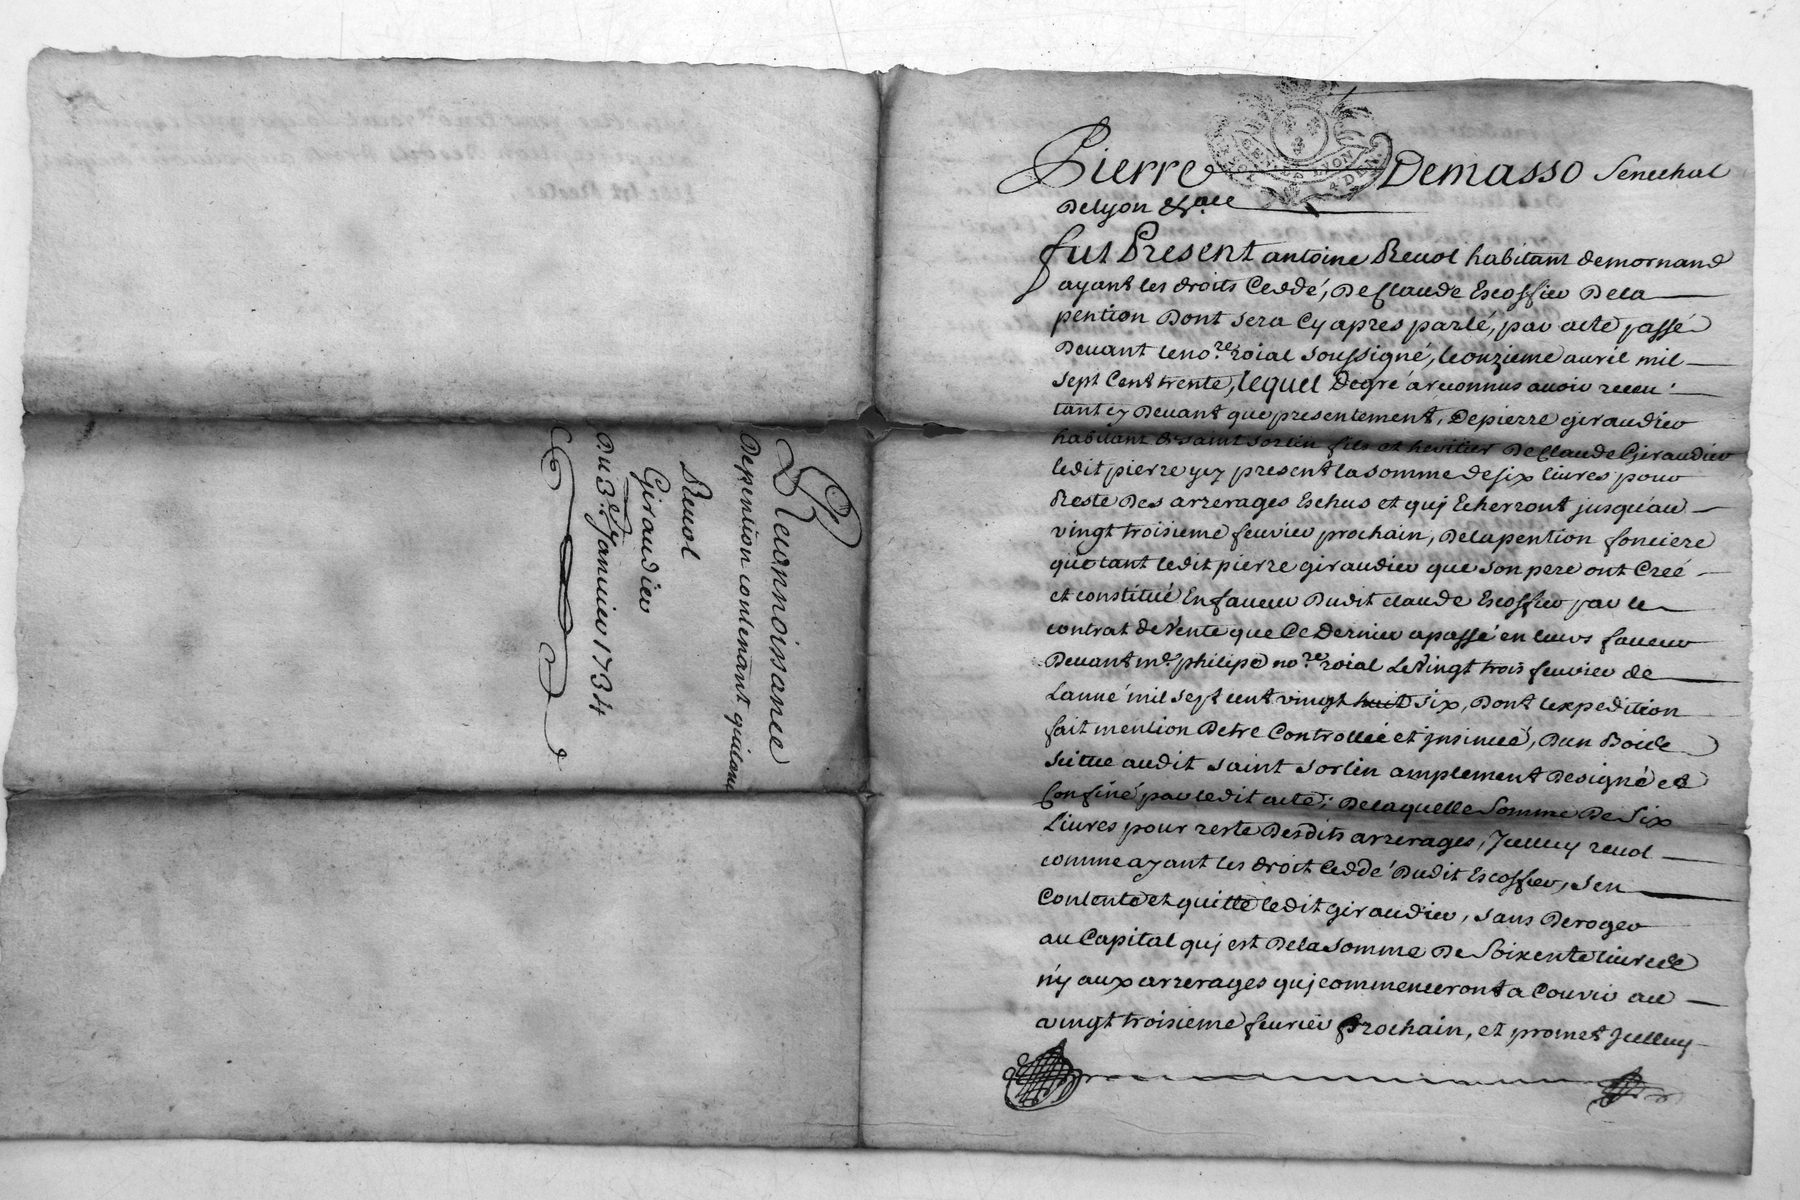 Reconnoissance
De pention contenant quitance
Revol
Giraudier
Du 3.e Janvier 1734
GEN. DE LYON
4. DEN.
Pierre Demasso Senechal
De lyon &
fut Present antoine Revol habitant de mornand
ayant les droits Ceddé, De Claude Escoffier De la
pention Dont sera Cy apres parlé, par acte passé
Devant le no.re roial soussigné, le onzieme avril mil
sept Cent trente, lequel De gré a reconnus avoir receu
tant cy Devant que presentement, De pierre giraudier
habitant de saint sorlin fils et heritier De Claude Giraudier
ledit pierre yçy present la somme de six livres pour
Reste Des arrerages Eschus et quj Echerront jusqu'au
vingt troisieme fevrier prochain, De la pention fonciere
que tant ledit pierre giraudier que son pere ont Creé
et constitué En faveur Dudit claude Escoffier par le
contrat de Vente que Ce Dernier a passé en leurs faveur
Devant m.e philipe no.re roial le Vingt trois fevrier de
Lanné mil sept cent vingt huit six, Dont lexpedition
fait mention Detre Controllée et jnsinué, Dun Bois de
scitue audit saint sorlin amplement Designé et
Confiné par ledit acte; De laquelle Somme De Six
Livres pour reste Desdits arrerages, Jcelluy revol
comme ayant les droit Ceddé Dudit Escoffier, s'en
Contente et quitte ledit giraudier, sans Deroger
au Capital quj est De la somme De Soixente livre de
n'y aux arrerages quj commenceront a Courir au
vingt troisieme fevrier prochain, et promet Jcelluy